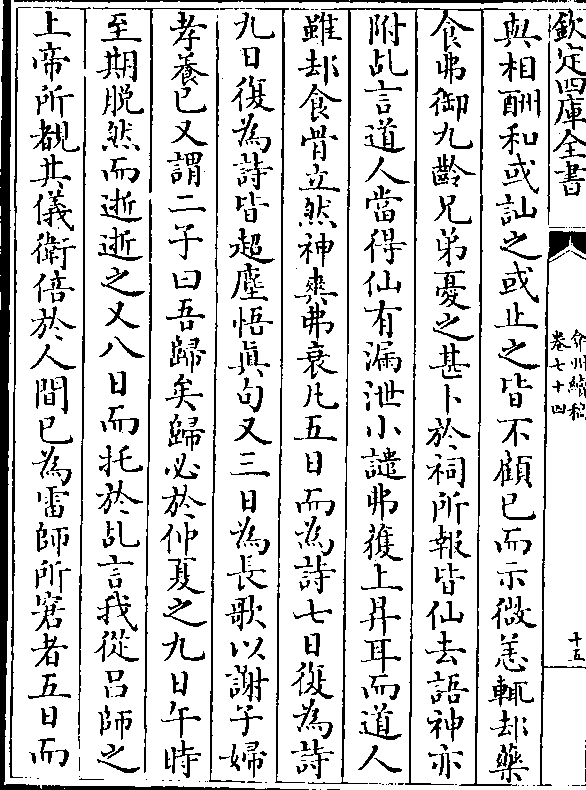 欽定四庫全書
弇州續稿
卷七十四
十五
與相酬和或訕之或止之皆不顧已而示微恙輒却藥
食弗御九齡兄弟憂之甚卜於祠所報皆仙去語神亦
附乩言道人當得仙有漏泄小譴弗獲上昇耳而道人
雖却食骨立然神爽弗衰凡五日而為詩七日復為詩
九日復為詩皆超塵悟真句又三日為長歌以謝子婦
孝養已又謂二子曰吾歸矣歸必於仲夏之九日午時
至期脫然而逝逝之又八日而托於乩言我從吕師之
上帝所覩其儀衛倍於人間已為雷師所窘者五日而